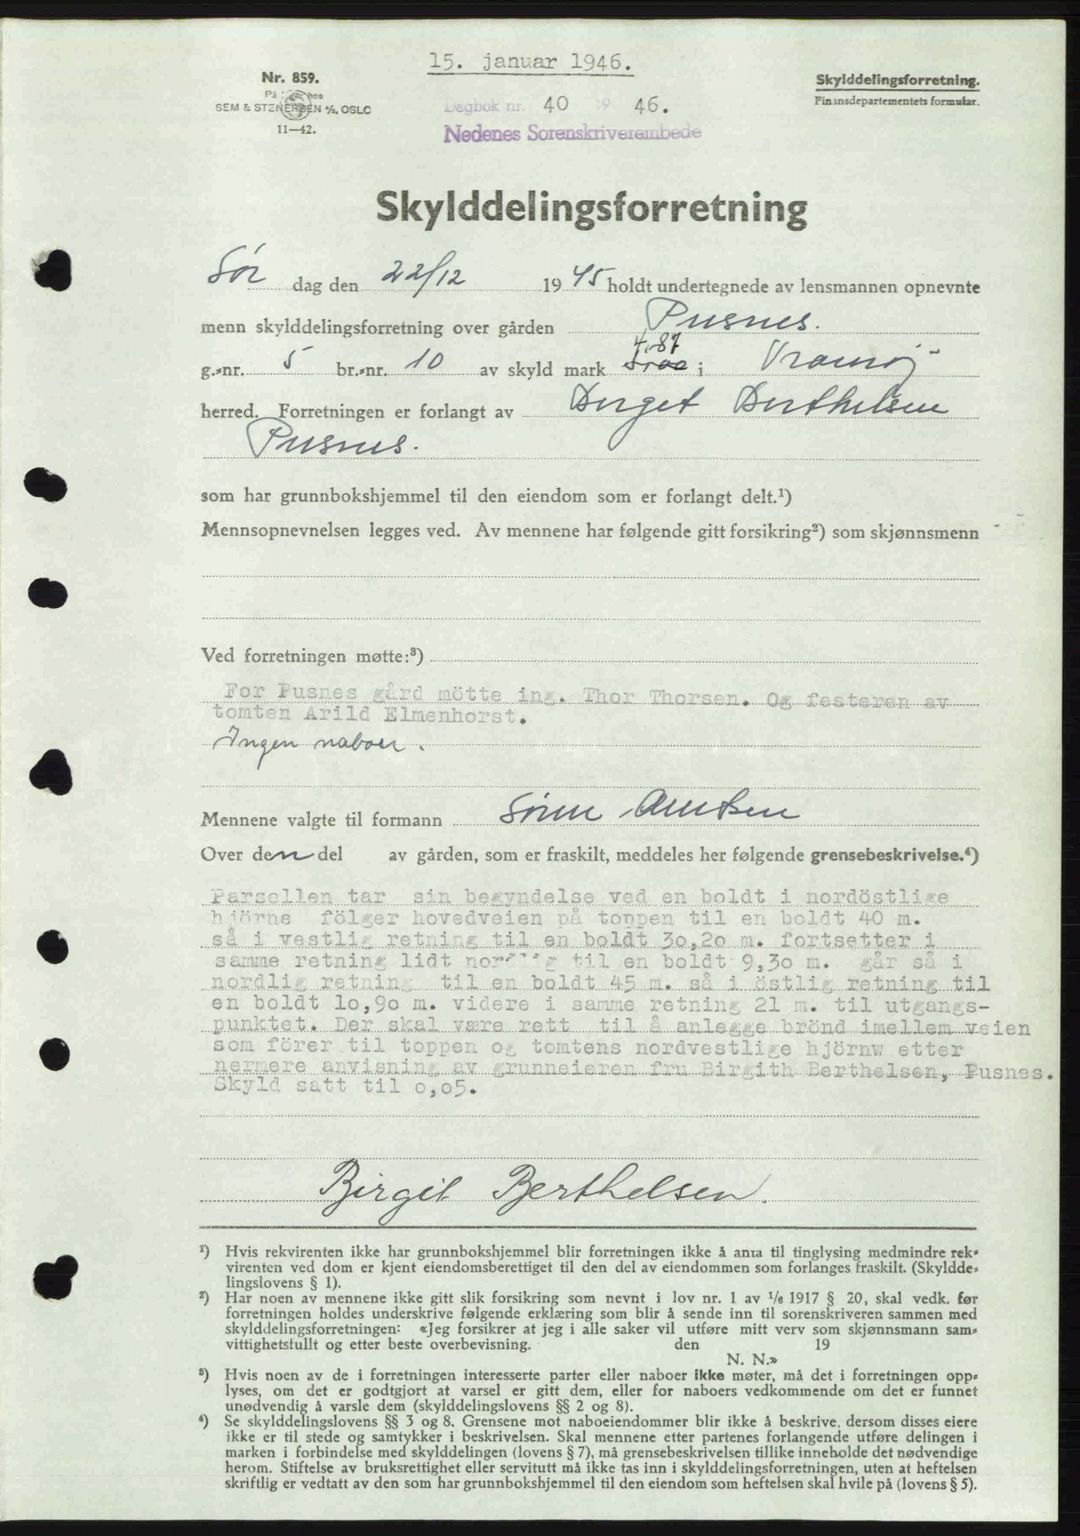 15. januar 1946.
Nr. 859.
SEM & STENERSEN A/S. OSLO
11—42.
Dagbok nr. 40 19 46.
Nedenes Sorenskriverembede
Skylddelingsforretning.
Finansdepartementets formular.
Skylddelingsforretning
Lör dag den 22/12 1945 holdt undertegnede av lensmannen opnevnte
menn skylddelingsforretning over gården Pusnes.
4,87
g.-nr. 5 br.-nr. 10 av skyld mark i
herred. Forretningen er forlangt av Birget Berthelsen
Pusnes.
som har grunnbokshjemmel til den eiendom som er forlangt delt.¹)
Mennsopnevnelsen legges ved. Av mennene har følgende gitt forsikring²) som skjønnsmenn
Ved forretningen møtte:³)
For Pusnes gård mötte ing. Thor Thorsen. Og festeren av
tomten Arild Elmenhorst.
Ingen naboer.
Mennene valgte til formann
Over den del av gården, som er fraskilt, meddeles her følgende grensebeskrivelse.⁴)
Parsellen tar sin begyndelse ved en boldt i nordöstlige
hjörne fölger hovedveien på toppen til en boldt 40 m.
så i vestlig retning til en boldt 30,20 m. fortsetter i
samme retning lidt nordlig til en boldt 9,30 m. går så i
nordlig retning til en boldt 45 m. så i östlig retning til
en boldt 10,90 m. videre i samme retning 21 m. til utgangs-
punktet. Der skal være rett til å anlegge brönd imellem veien
som förer til toppen og tomtens nordvestlige hjörnw etter
nermere anvisning av grunneieren fru Birgith Berthelsen, Pusnes.
Skyld satt til 0,05.
Birgit Berthelsen.
¹) Hvis rekvirenten ikke har grunnbokshjemmel blir forretningen ikke å anta til tinglysing medmindre rek-
virenten ved dom er kjent eiendomsberettiget til den del av eiendommen som forlanges fraskilt. (Skyldde-
lingslovens § 1).
²) Har noen av mennene ikke gitt slik forsikring som nevnt i lov nr. 1 av 1/6 1917 § 20, skal vedk. før
forretningen holdes underskrive følgende erklæring som blir å sende inn til sorenskriveren sammen med
skylddelingsforretningen: «Jeg forsikrer at jeg i alle saker vil utføre mitt verv som skjønnsmann sam-
vittighetsfullt og etter beste overbevisning. den 19
N. N.»
³) Hvis noen av de i forretningen interesserte parter eller naboer ikke møter, må det i forretningen opp-
lyses, om det er godtgjort at varsel er gitt dem, eller for naboers vedkommende om det er funnet
unødvendig å varsle dem (skylddelingslovens §§ 2 og 8).
⁴) Se skylddelingslovens §§ 3 og 8. Grensene mot naboeiendommer blir ikke å beskrive, dersom disses eiere
ikke er til stede og samtykker i beskrivelsen. Skal mennene etter partenes forlangende utføre delingen i
marken i forbindelse med skylddelingen (lovens § 7), må grensebeskrivelsen tillike inneholde det nødvendige
herom. Stiftelse av bruksrettighet eller servitutt må ikke tas inn i skylddelingsforretningen, uten at heftelsen
skriftlig er vedtatt av den som har grunnbokshjemmel til den eiendom som heftelsen skal hvile på (lovens § 5).